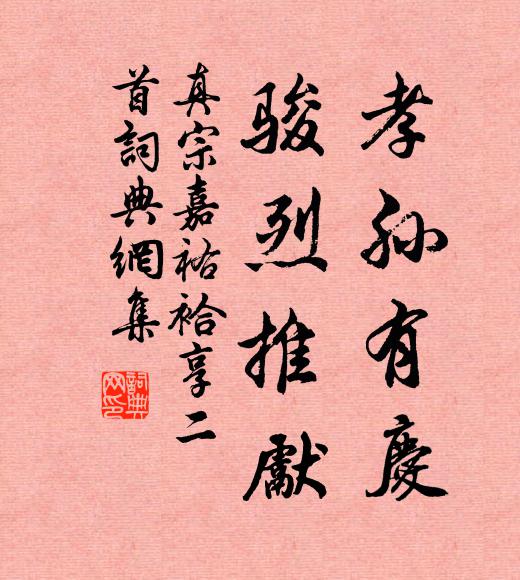 孝孙有慶
骏烈推獻
真宗嘉祐祫享二
首詞典網集
詞典网印